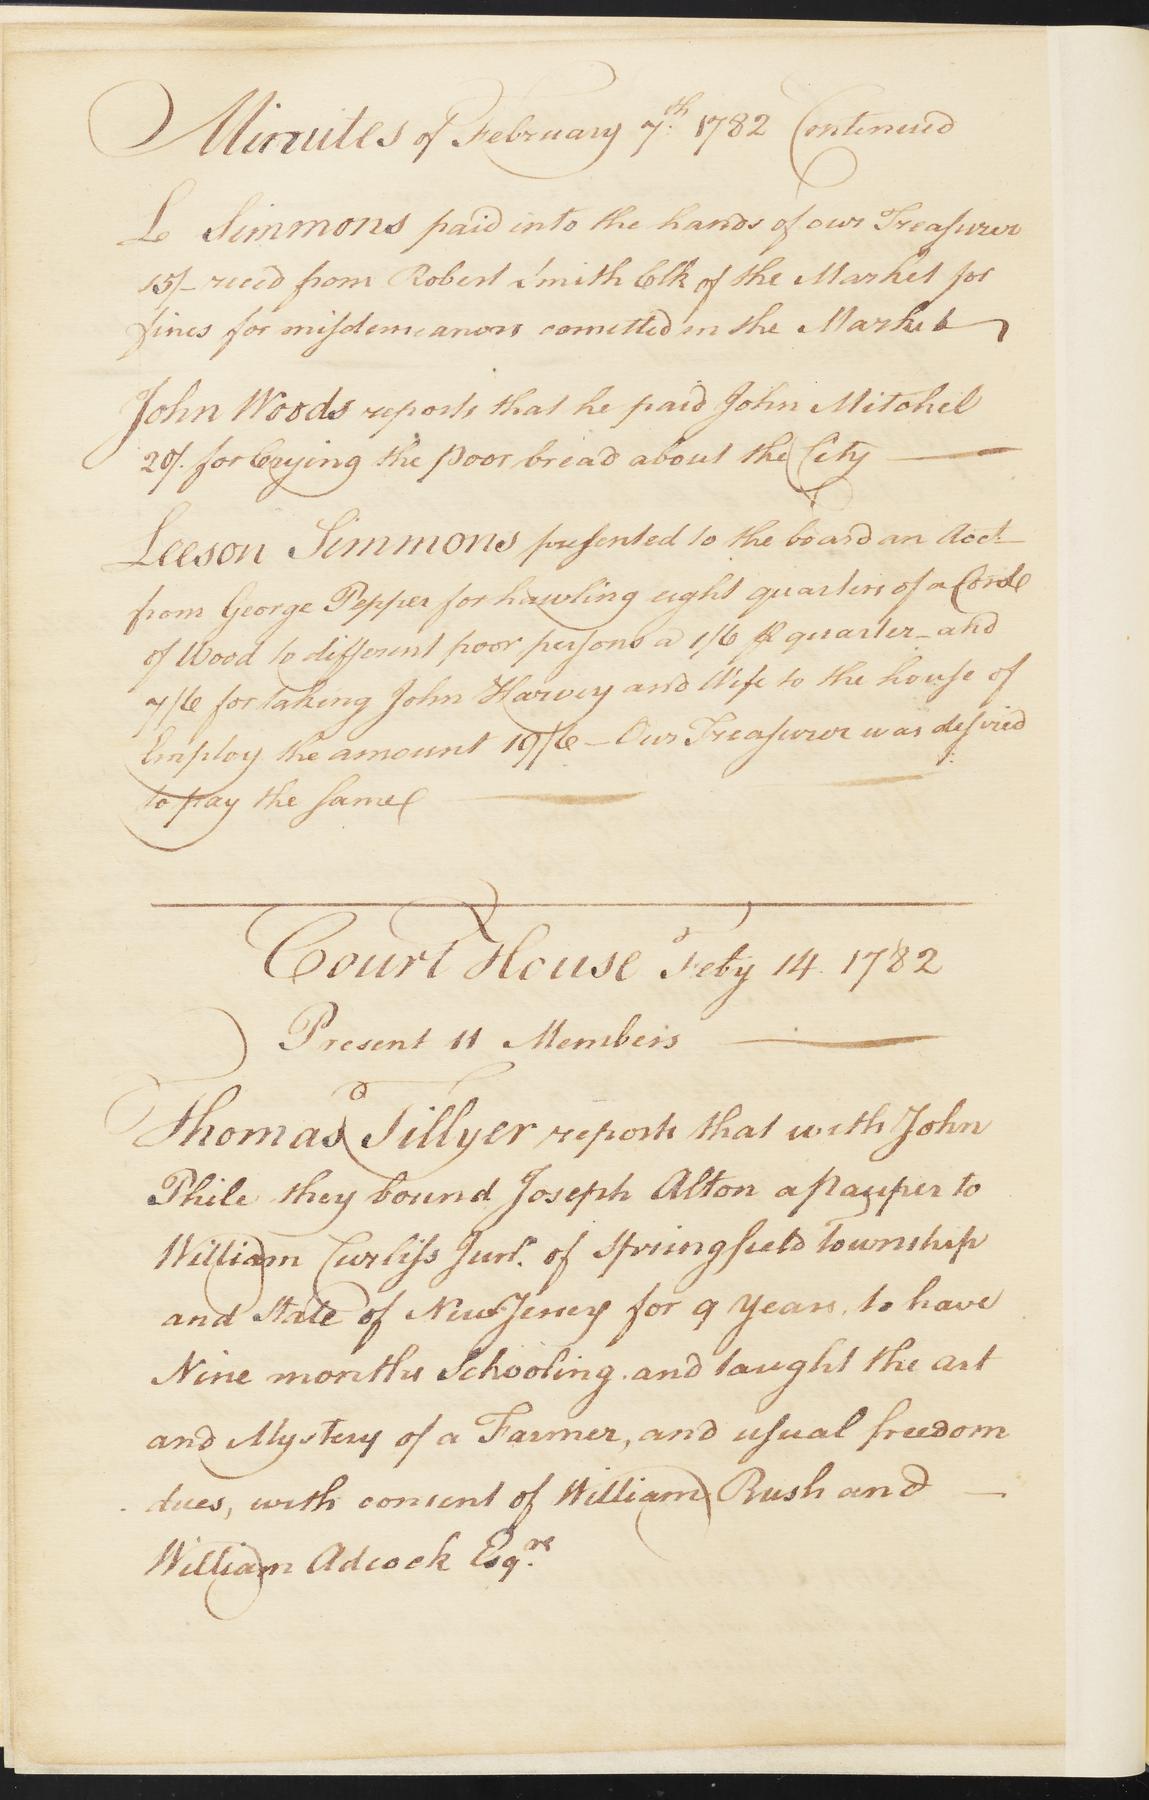 Minuites of February 7th. 1782 Continued
Le Simmons paid into the hands of our Treasurer
15/- recd from Robert Smith Clk of the Market for
fines for misdemeanors cometted in the Market
John Woods reports that he paid John Mitchel
20/. for Crying the Poor bread about the City
Leeson Simmons presented to the board an Acct
from George Pepper for hawling eight quarters of a Corde
of Wood to different poor persons a 1/6 ⅌ quarter - and
7/6 for taking John Harvey and Wife to the house of
Employ the amount 19/6 - Our Treasurer was desired
to pay the same
Court House Feby 14 1782
Present 11 Members
Thomas Tillyer reports that with John
Phile they bound Joseph Alton a Pauper to
William Curliss Junr. of Springfield Township
and State of New Jersey for 9 Years. to have
Nine months Schooling. and taught the art
and Mystery of a Farmer, and usual freedom
dues, with consent of William Rush and
William Adcock Esqre.